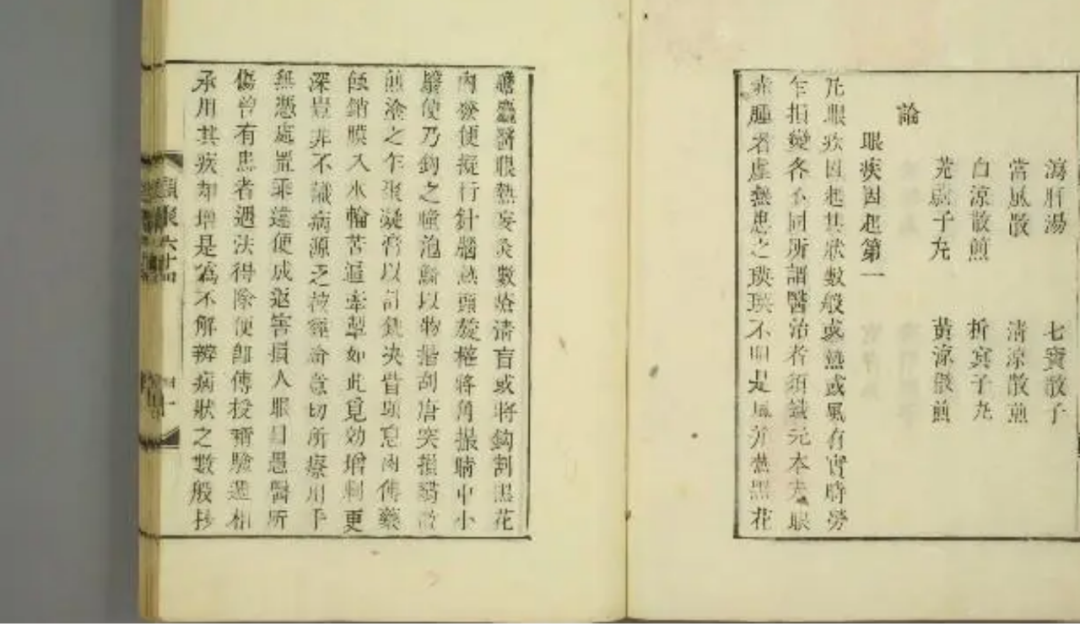 瀉肝湯 七寶散子
當風散 清涼散煎
白涼散煎 析蓂子丸
茺蔚子丸 黃涼散煎
論
眼疾因起第一
凡眼疾因起其狀數般或熱或風有實時勞
乍損變各不同所謂醫治者須識元本夫眼
赤腫者虛熱患之瑛瑛不明是風黑花
醫眼熱妄灸數瘡清盲或將鈎割黑花
內發便擬行針腦熱頭旋權將角撮睛中小
翳便乃鈎之瞳泡翳以物揩刮唐突損翳
煎塗之乍棗凝膏以決眥頭息肉傅藥
蝕銷膜入水輪苦逼牽如此覓効增剩更
深豈非不識病源之意切所療用手
無憑處置乖違便成返害損人眼目愚醫所
傷曾有患者遇法得除便即傳授稱驗遞相
承用其疾却增是爲不解辨病狀之數般抄
六十四